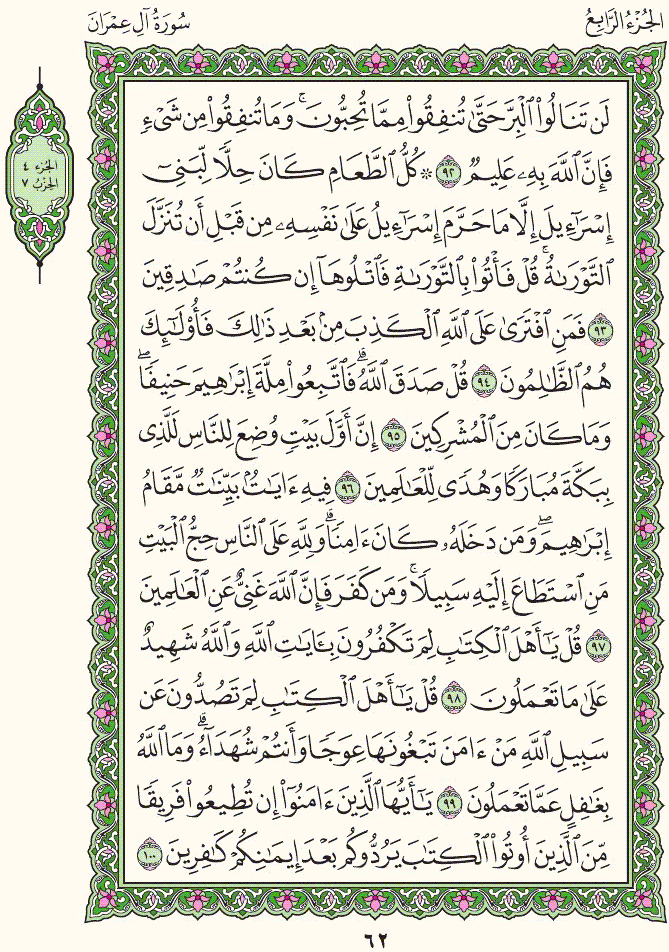 الجُزْءُ الرَّابِعُ
سُورَةُ آلِ عِمْرَانَ
الجزء ٤
الحِزْبُ ٧
لَن تَنَالُوا۟ ٱلْبِرَّ حَتَّىٰ تُنفِقُوا۟ مِمَّا تُحِبُّونَ ۚ وَمَا تُنفِقُوا۟ مِن شَىْءٍ
فَإِنَّ ٱللَّهَ بِهِۦ عَلِيمٌ ٩٢ ۞ كُلُّ ٱلطَّعَامِ كَانَ حِلًّا لِّبَنِىٓ
إِسْرَٰٓءِيلَ إِلَّا مَا حَرَّمَ إِسْرَٰٓءِيلُ عَلَىٰ نَفْسِهِۦ مِن قَبْلِ أَن تُنَزَّلَ
ٱلتَّوْرَىٰةُ ۗ قُلْ فَأْتُوا۟ بِٱلتَّوْرَىٰةِ فَٱتْلُوهَآ إِن كُنتُمْ صَـٰدِقِينَ
٩٣ فَمَنِ ٱفْتَرَىٰ عَلَى ٱللَّهِ ٱلْكَذِبَ مِنۢ بَعْدِ ذَٰلِكَ فَأُو۟لَـٰٓئِكَ
هُمُ ٱلظَّـٰلِمُونَ ٩٤ قُلْ صَدَقَ ٱللَّهُ ۗ فَٱتَّبِعُوا۟ مِلَّةَ إِبْرَٰهِيمَ حَنِيفًا ۖ
وَمَا كَانَ مِنَ ٱلْمُشْرِكِينَ ٩٥ إِنَّ أَوَّلَ بَيْتٍ وُضِعَ لِلنَّاسِ لَلَّذِى
بِبَكَّةَ مُبَارَكًا وَهُدًى لِّلْعَـٰلَمِينَ ٩٦ فِيهِ ءَايَـٰتٌۢ بَيِّنَـٰتٌ مَّقَامُ
إِبْرَٰهِيمَ ۖ وَمَن دَخَلَهُۥ كَانَ ءَامِنًا ۗ وَلِلَّهِ عَلَى ٱلنَّاسِ حِجُّ ٱلْبَيْتِ
مَنِ ٱسْتَطَاعَ إِلَيْهِ سَبِيلًا ۚ وَمَن كَفَرَ فَإِنَّ ٱللَّهَ غَنِىٌّ عَنِ ٱلْعَـٰلَمِينَ
٩٧ قُلْ يَـٰٓأَهْلَ ٱلْكِتَـٰبِ لِمَ تَكْفُرُونَ بِـَٔايَـٰتِ ٱللَّهِ وَٱللَّهُ شَهِيدٌ
عَلَىٰ مَا تَعْمَلُونَ ٩٨ قُلْ يَـٰٓأَهْلَ ٱلْكِتَـٰبِ لِمَ تَصُدُّونَ عَن
سَبِيلِ ٱللَّهِ مَنْ ءَامَنَ تَبْغُونَهَا عِوَجًا وَأَنتُمْ شُهَدَآءُ ۗ وَمَا ٱللَّهُ
بِغَـٰفِلٍ عَمَّا تَعْمَلُونَ ٩٩ يَـٰٓأَيُّهَا ٱلَّذِينَ ءَامَنُوٓا۟ إِن تُطِيعُوا۟ فَرِيقًا
مِّنَ ٱلَّذِينَ أُوتُوا۟ ٱلْكِتَـٰبَ يَرُدُّوكُم بَعْدَ إِيمَـٰنِكُمْ كَـٰفِرِينَ ١٠٠
٦٢